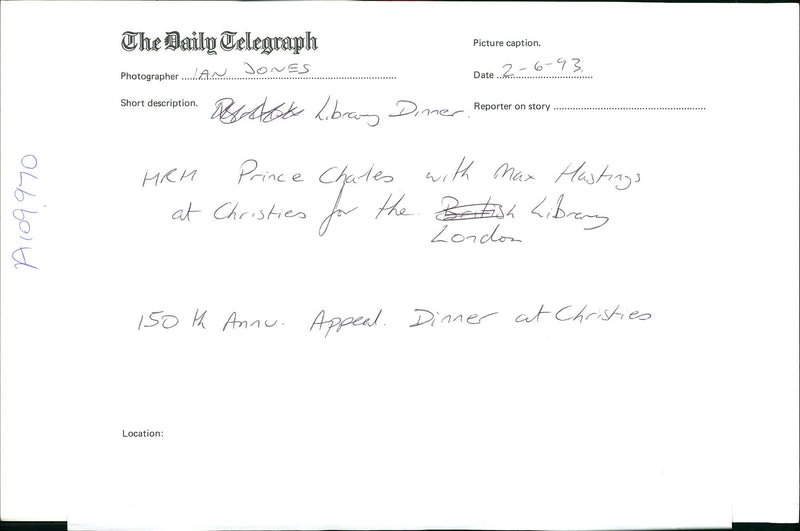 The Daily Telegraph
Picture caption.
Photographer IAN JONES
Date 2-6-93.
Short description. Library Dinner.
Reporter on story
HRH Prince Charles with Max Hastings
at Christies for the British Library
London
150th Annv. Appeal. Dinner at Christies
Location:
A109,970